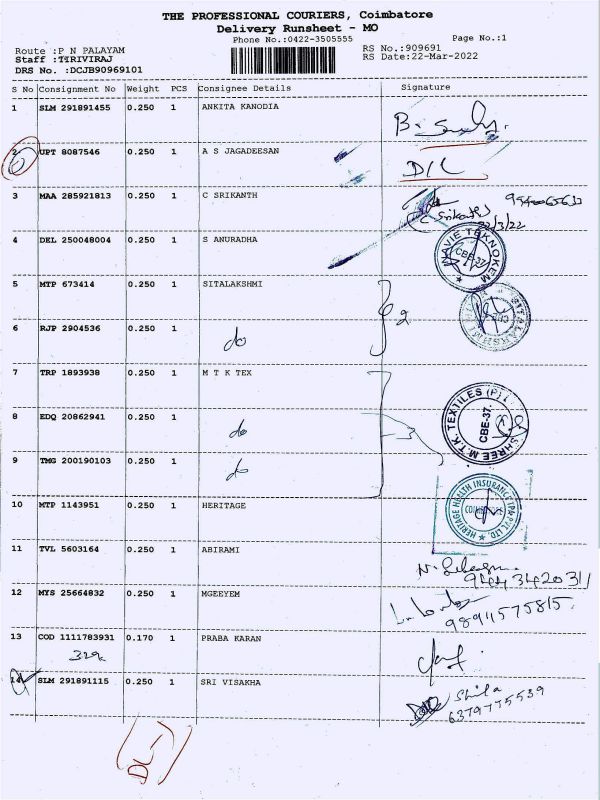 THE PROFESSIONAL COURIERS, Coimbatore
Delivery Runsheet - MO
Phone No.:0422-3505555 Page No.:1
Route :P N PALAYAM RS No.:909691
Staff :TIRIVIRAJ RS Date:22-Mar-2022
DRS No. :DCJB90969101
S No Consignment No Weight PCS Consignee Details Signature
1 SLM 291891455 0.250 1 ANKITA KANODIA
2 UPT 8087546 0.250 1 A S JAGADEESAN D/L
3 MAA 285921813 0.250 1 C SRIKANTH C Srikanth
22/3/22
4 DEL 250048004 0.250 1 S ANURADHA TEKNOKEM CBE-37
5 MTP 673414 0.250 1 SITALAKSHMI
6 RJP 2904536 0.250 1 do 2
7 TRP 1893938 0.250 1 M T K TEX
8 EDQ 20862941 0.250 1 do 3 SHREE M.T.K. TEXTILES (P) CBE-37.
9 TMG 200190103 0.250 1 do
10 MTP 1143951 0.250 1 HERITAGE HERITAGE HEALTH INSURANCE TPA PVT LTD
11 TVL 5603164 0.250 1 ABIRAMI
9443420311
12 MYS 25664832 0.250 1 MGEEYEM
13 COD 1111783931 0.170 1 PRABA KARAN
14 SLM 291891115 0.250 1 SRI VISAKHA Shila
6379775539